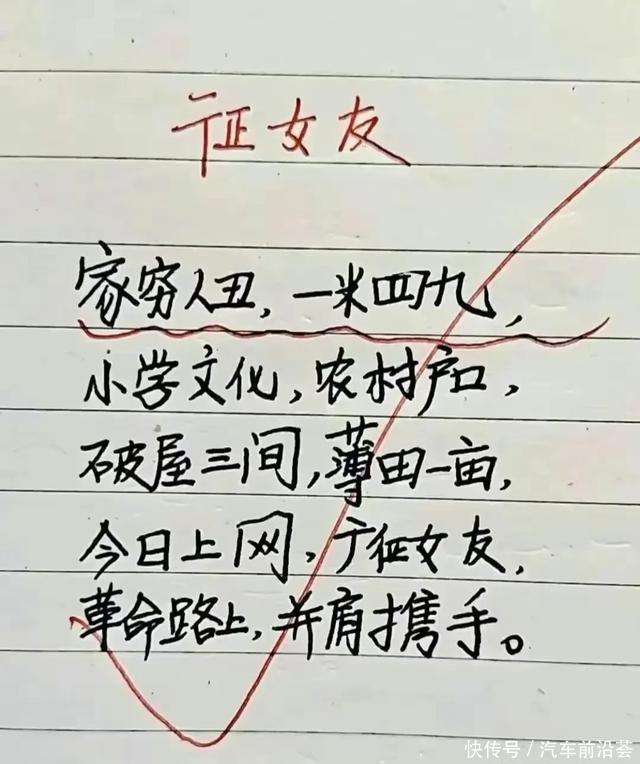 征女友
家穷人丑，一米四九，
小学文化，农村户口，
破屋三间，薄田一亩，
今日上网，广征女友，
革命路上，并肩携手。
快传号／汽车前沿荟